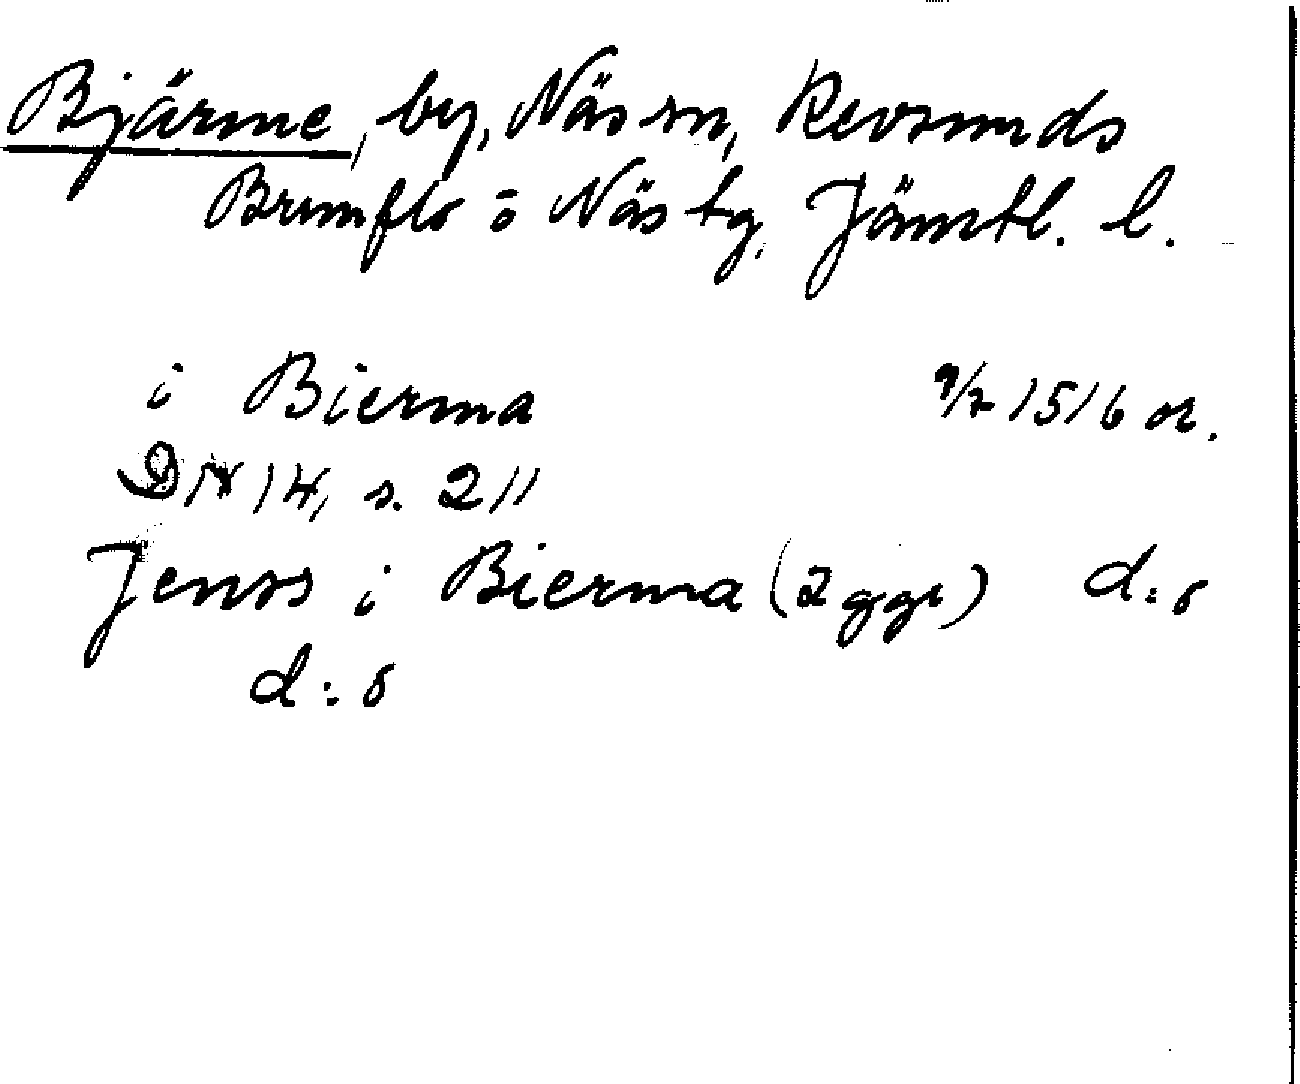 Bjärme, by, Näs sn, Revsunds
Brunflo o Näs tg, Jämtl. l.
i Bierma 9/2 1516 or.
DN 14, s. 211
Jenss i Bierma (2 ggr) d:o
d:o